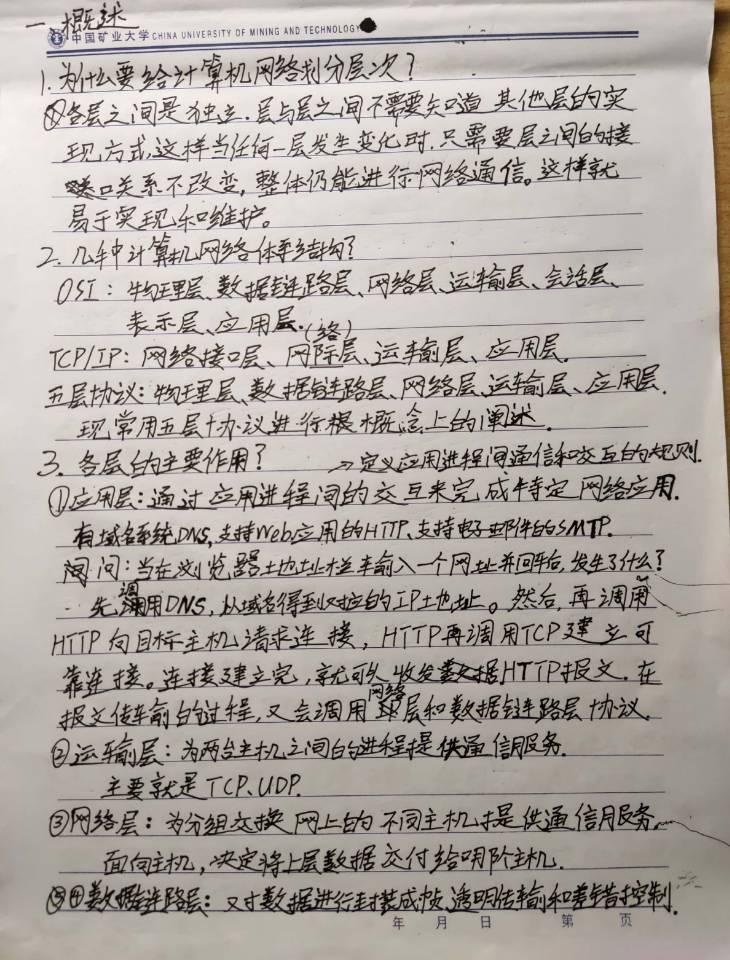 一、概述
中国矿业大学 CHINA UNIVERSITY OF MINING AND TECHNOLOGY
1.为什么要给计算机网络划分层次?
①各层之间是独立.层与层之间不需要知道其他层的实
现方式,这样当任何一层发生变化时,只需要层之间的接
口关系不改变,整体仍能进行网络通信。这样就
易于实现和维护。
2.几种计算机网络体系结构?
OSI:物理层、数据链路层、网络层、运输层、会话层、
表示层、应用层.
(络)
TCP/IP:网络接口层、网际层、运输层、应用层.
五层协议:物理层、数据链路层、网络层、运输层、应用层.
现常用五层协议进行概念上的阐述.
3.各层的主要作用?
→定义应用进程间通信和交互的规则.
①应用层:通过应用进程间的交互来完成特定网络应用.
有域名系统DNS,支持Web应用的HTTP、支持电子邮件的SMTP.
问:当在浏览器地址栏输入一个网址并回车后,发生了什么?
先调用DNS,从域名得到对应的IP地址。然后,再调用
HTTP向目标主机请求连接,HTTP再调用TCP建立可
靠连接。连接建立完,就可以收发HTTP报文.在
报文传输的过程,又会调用网络层和数据链路层协议.
②运输层:为两台主机之间的进程提供通信服务.
主要就是TCP、UDP.
③网络层:为分组交换网上的不同主机提供通信服务.
面向主机,决定将上层数据交付给哪个主机.
④数据链路层:对数据进行封装成帧、透明传输和差错控制.
年 月 日 第 页